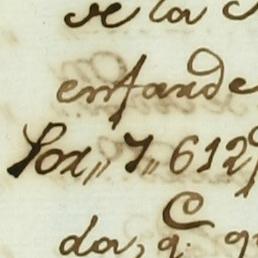 de la C
enfande
Sox,, 7,, 612
da, q. q